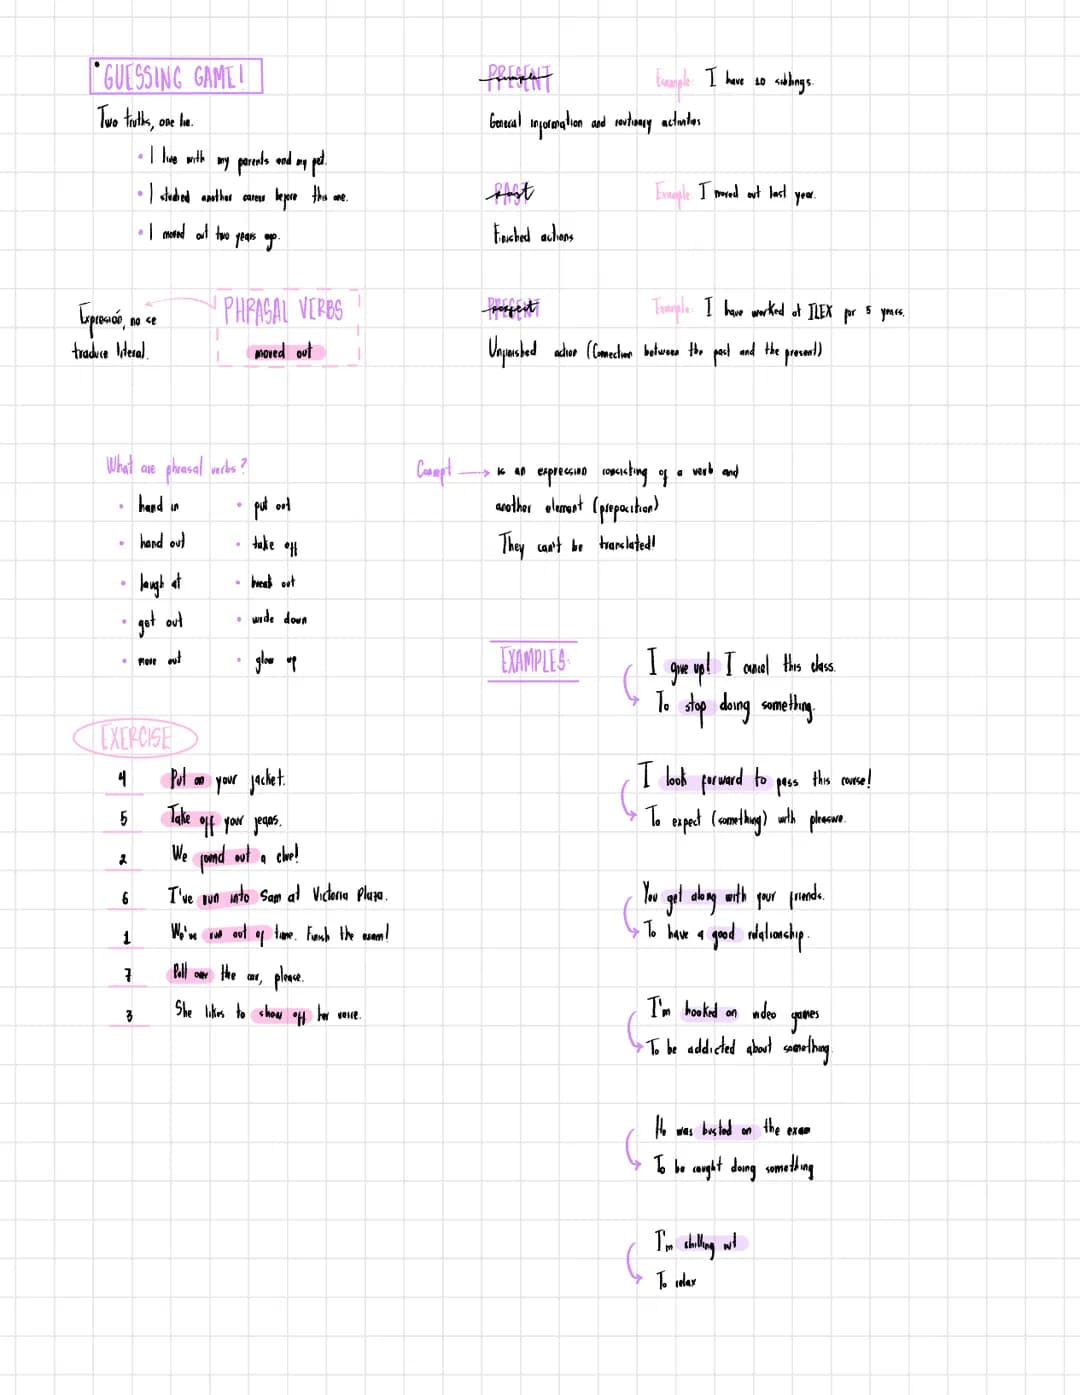 GUESSING GAME!
Two truths, one lie.
• I live with my parents and my pet.
• I studied another career before this one.
• I moved out two years ago.
PRESENT
simple
Example: I have 10 siblings.
General information and routinary activities
PAST
past
Example: I moved out last year.
Finished actions
Expresión, no se
traduce literal.
PHRASAL VERBS
moved out
PRESENT
perfect
Example: I have worked at ILEX for 5 years.
Unfinished action (Connection between the past and the present)
What are phrasal verbs?
• hand in
• hand out
• laugh at
• get out
• move out
• put out
• take off
• break out
• down
• glow up
Concept → is an expression consisting of a verb and
another element (preposition)
They can't be translated!
EXAMPLES:
I give up! I cancel this class.
To stop doing something.
I look forward to pass this course!
To expect (something) with pleasure.
You get along with your friends.
To have a good relationship.
I'm hooked on video games
To be addicted about something.
He was busted on the exam
To be caught doing something
I'm chilling out
To relax
EXERCISE
4 Put on your jacket.
5 Take off your jeans.
2 We found out a clue!
6 I've run into Sam at Victoria Plaza.
1 We've run out of time. Finish the exam!
7 Pull over the car, please.
3 She likes to show off her voice.